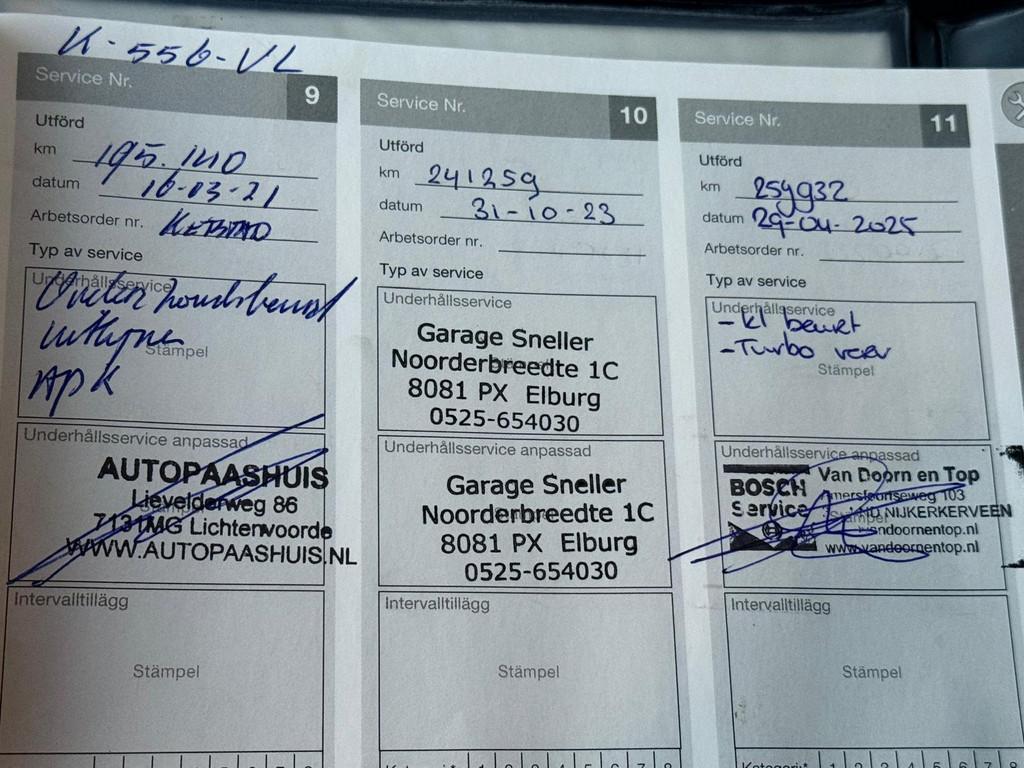 K-556-VL
Service Nr. 9
Utförd
km 195.140
datum 16-03-21
Arbetsorder nr.
Typ av service
Underhållsservice
Onderhoudsbeurt
APK
Stämpel
Underhållsservice anpassad
AUTOPAASHUIS
Lievelderweg 86
7131MG Lichtenvoorde
WWW.AUTOPAASHUIS.NL
Intervalltillägg
Stämpel
Service Nr. 10
Utförd
km 241259
datum 31-10-23
Arbetsorder nr.
Typ av service
Underhållsservice
Garage Sneller
Noorderbreedte 1C
8081 PX Elburg
0525-654030
Underhållsservice anpassad
Garage Sneller
Noorderbreedte 1C
8081 PX Elburg
0525-654030
Intervalltillägg
Stämpel
Service Nr. 11
Utförd
km 259932
datum 29-04-2025
Arbetsorder nr.
Typ av service
Underhållsservice
- kl beurt
- Turbo veer
Stämpel
Underhållsservice anpassad
BOSCH
Service
Van Doorn en Top
Amersfoortseweg 103
NIJKERKERVEEN
vandoornentop.nl
www.vandoornentop.nl
Intervalltillägg
Stämpel